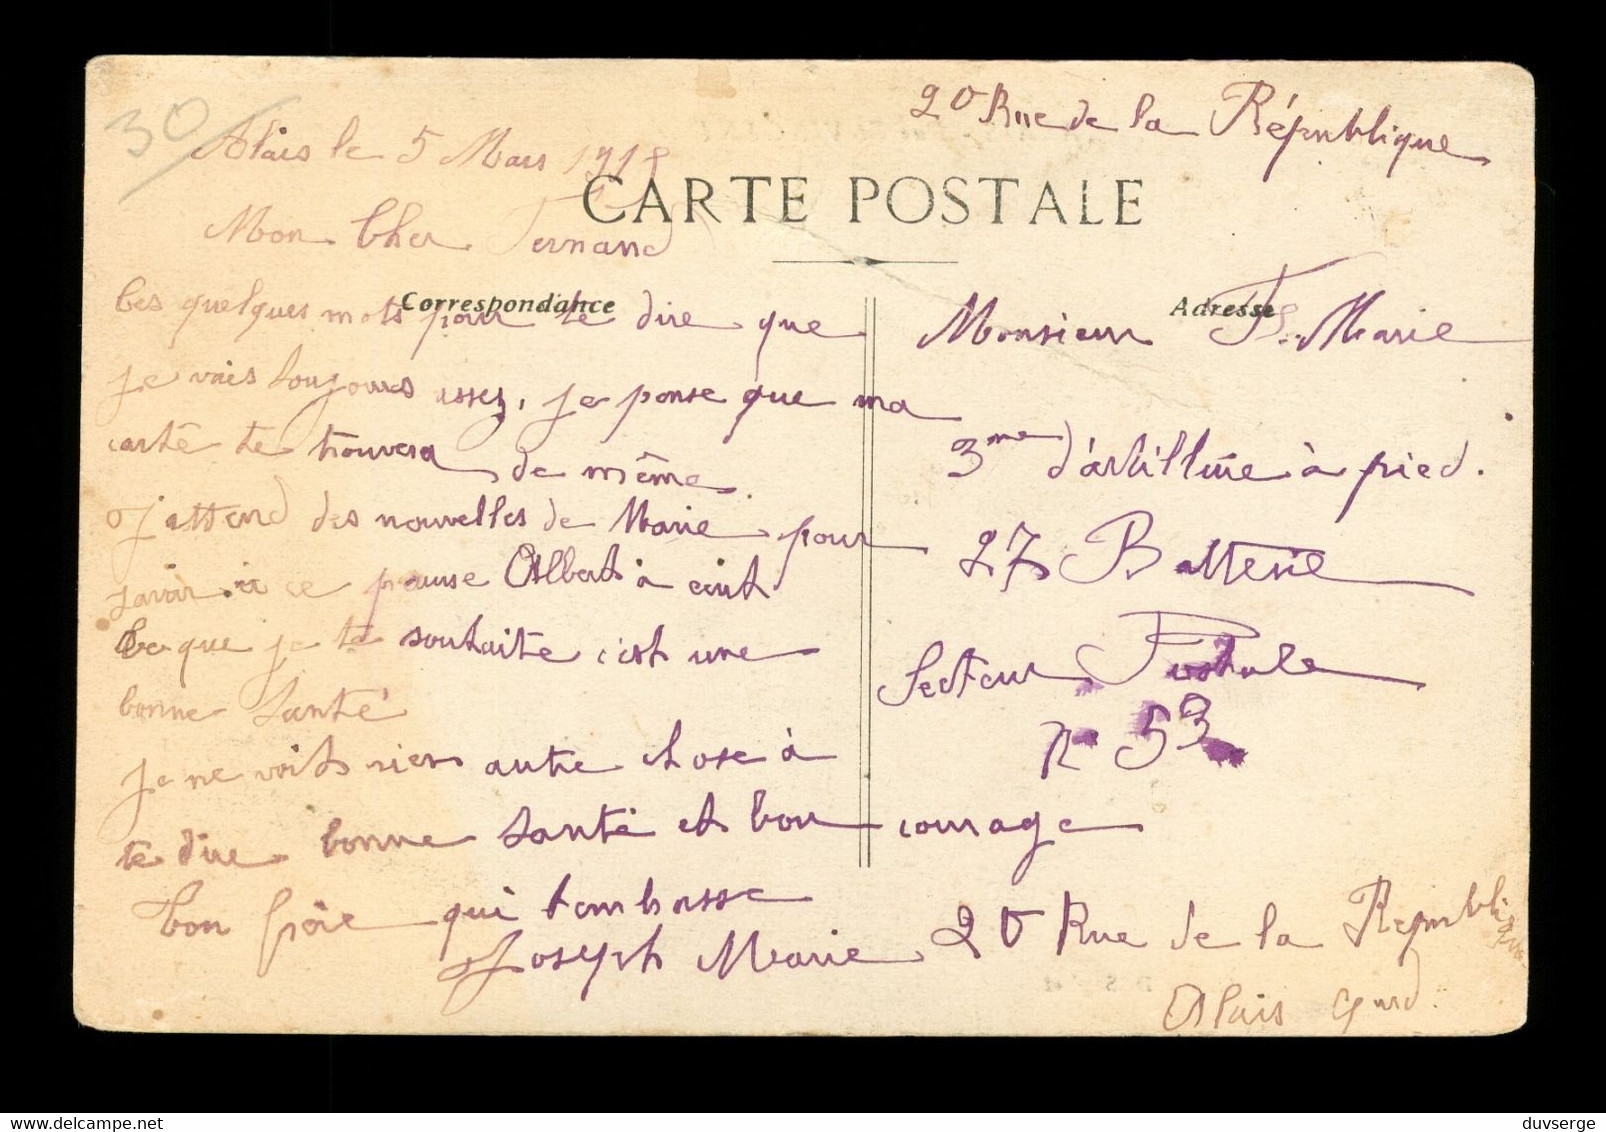 30
20 Rue de la République
Alais le 5 Mars 1918
CARTE POSTALE
Mon Cher Fernand
Correspondance
Ces quelques mots pour te dire que
je vais toujours assez, je ponse que ma
carte te trouvera de même
J'attend des nouvelles de Marie pour
savoir si ce pauvre Albert à écrit
Ce que je te souhaite c'est une
bonne santé
je ne voits rien autre chose à
te dire bonne santé et bon courage
Ton frère qui t'embrasse
Joseph Marie
Adresse
Monsieur Fs. Marie
3me d'artillerie à pied.
27 Batterie
Secteur Postale
no 53
20 Rue de la République
Alais Gard.
duvserge